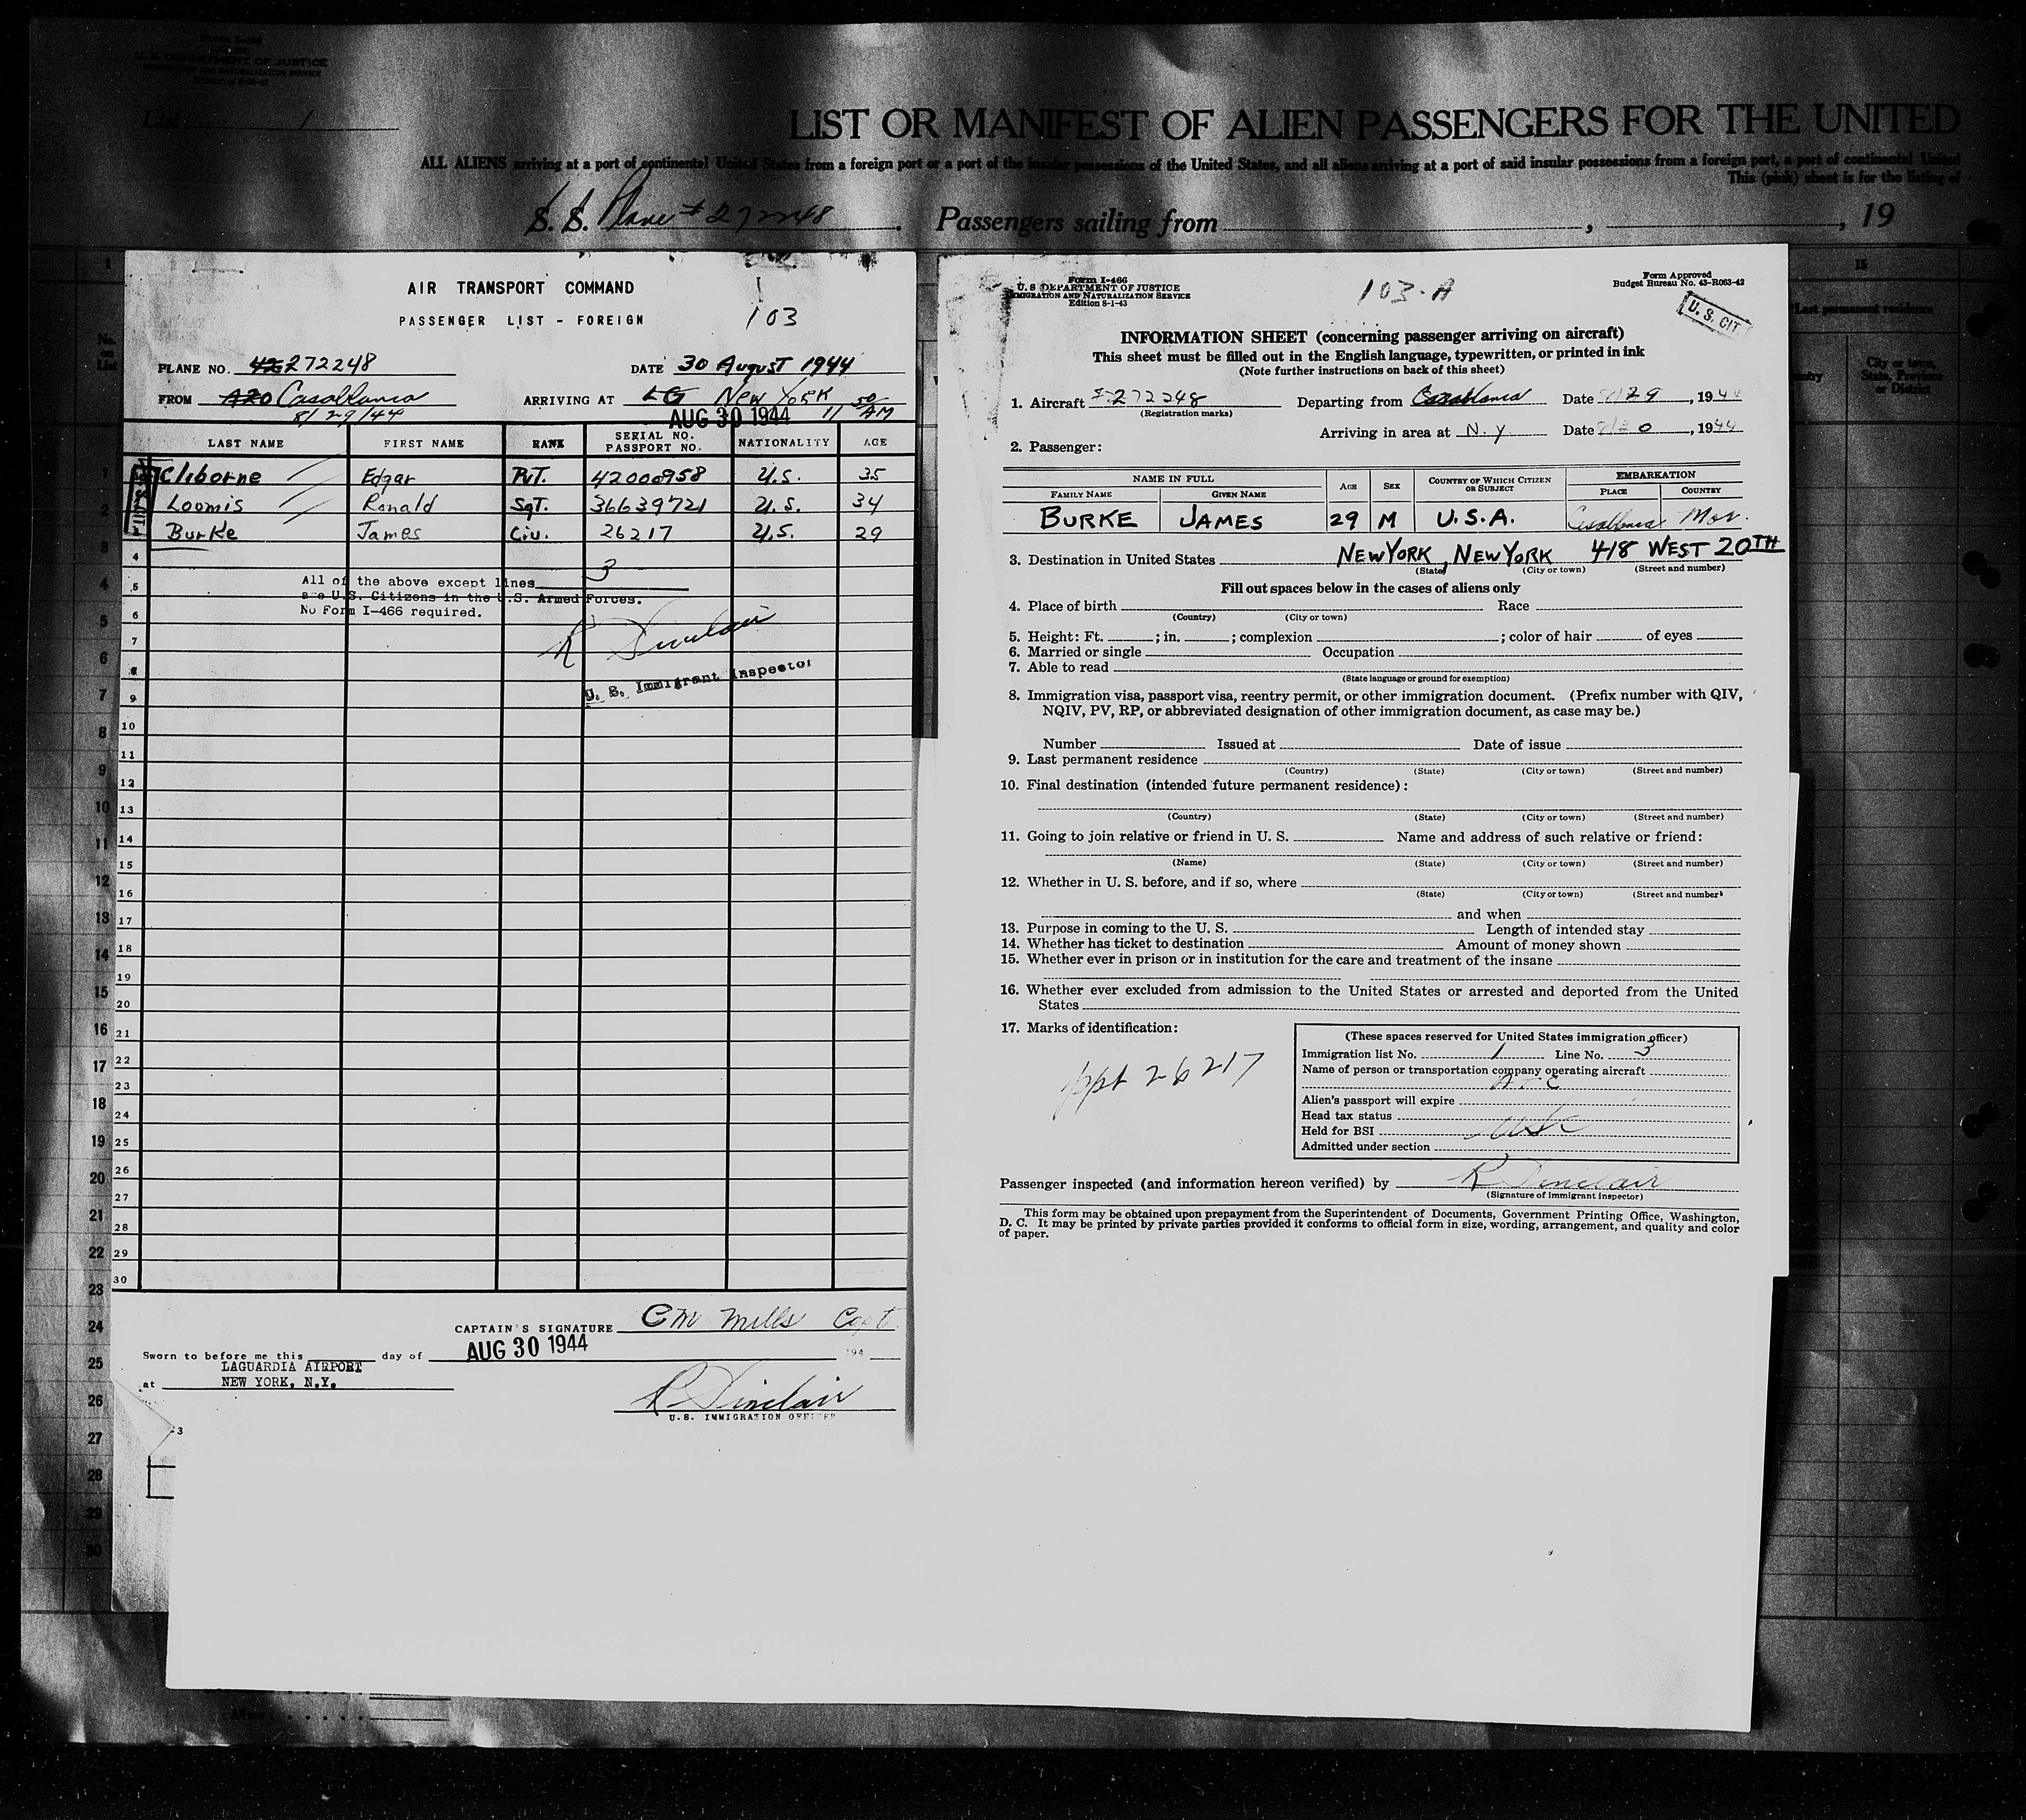 Form I-466
U. S. DEPARTMENT OF JUSTICE
IMMIGRATION AND NATURALIZATION SERVICE
List 1
LIST OR MANIFEST OF ALIEN PASSENGERS FOR THE UNITED
ALL ALIENS arriving at a port of continental United States from a foreign port or a port of the insular possessions of the United States, and all aliens arriving at a port of said insular possessions from a foreign port, a port of continental United
This (pink) sheet is for the listing of
S. S. Plane # 272248. Passengers sailing from , , 19
AIR TRANSPORT COMMAND
PASSENGER LIST - FOREIGN
103
PLANE NO. 42272248 DATE 30 August 1944
FROM A20 Casablanca ARRIVING AT LG New York
8/29/44 AUG 30 1944 11 50/AM
LAST NAME FIRST NAME RANK SERIAL NO. PASSPORT NO. NATIONALITY AGE
1 Cliborne Edgar Pvt. 42000958 U.S. 35
2 Loomis Ronald Sgt. 36639721 U.S. 34
3 Burke James Civ. 26217 U.S. 29
4
5 All of the above except lines 3
are U.S. Citizens in the U.S. Armed Forces.
6 No Form I-466 required.
7 R Sinclair
8
9 U. S. Immigrant Inspector
10
11
12
13
14
15
16
17
18
19
20
21
22
23
24
25
26
27
28
29
30
CAPTAIN'S SIGNATURE CM Mills Capt.
Sworn to before me this day of AUG 30 1944 194
LAGUARDIA AIRPORT
at NEW YORK, N.Y.
R Sinclair
U.S. IMMIGRATION OFFICER
-3
Form I-466
U. S DEPARTMENT OF JUSTICE
IMMIGRATION AND NATURALIZATION SERVICE
Edition 8-1-43
103-A
Form Approved
Budget Bureau No. 43-R063-42
U. S. CIT
INFORMATION SHEET (concerning passenger arriving on aircraft)
This sheet must be filled out in the English language, typewritten, or printed in ink
(Note further instructions on back of this sheet)
1. Aircraft # 272248 Departing from Casablanca Date 8/29, 1944
(Registration marks)
Arriving in area at N.Y. Date 8/30, 1944
2. Passenger:
NAME IN FULL AGE SEX COUNTRY OF WHICH CITIZEN OR SUBJECT EMBARKATION
FAMILY NAME GIVEN NAME PLACE COUNTRY
BURKE JAMES 29 M U.S.A. Casablanca Mor.
3. Destination in United States NEW YORK, NEW YORK 418 WEST 20TH
(State) (City or town) (Street and number)
Fill out spaces below in the cases of aliens only
4. Place of birth Race
(Country) (City or town)
5. Height: Ft. ; in. ; complexion ; color of hair of eyes
6. Married or single Occupation
7. Able to read
(State language or ground for exemption)
8. Immigration visa, passport visa, reentry permit, or other immigration document. (Prefix number with QIV,
NQIV, PV, RP, or abbreviated designation of other immigration document, as case may be.)
Number Issued at Date of issue
9. Last permanent residence
(Country) (State) (City or town) (Street and number)
10. Final destination (intended future permanent residence):
(Country) (State) (City or town) (Street and number)
11. Going to join relative or friend in U. S. Name and address of such relative or friend:
(Name) (State) (City or town) (Street and number)
12. Whether in U. S. before, and if so, where
(State) (City or town) (Street and number)
and when
13. Purpose in coming to the U. S. Length of intended stay
14. Whether has ticket to destination Amount of money shown
15. Whether ever in prison or in institution for the care and treatment of the insane
16. Whether ever excluded from admission to the United States or arrested and deported from the United
States
17. Marks of identification:
ppt 26217
(These spaces reserved for United States immigration officer)
Immigration list No. 1 Line No. 3
Name of person or transportation company operating aircraft
ATC
Alien's passport will expire
Head tax status
Held for BSI USC
Admitted under section
Passenger inspected (and information hereon verified) by R Sinclair
(Signature of immigrant inspector)
This form may be obtained upon prepayment from the Superintendent of Documents, Government Printing Office, Washington,
D. C. It may be printed by private parties provided it conforms to official form in size, wording, arrangement, and quality and color
of paper.
15
Last permanent residence
City or town, State, Province or District
No. on List
1
2
3
4
5
6
7
8
9
10
11
12
13
14
15
16
17
18
19
20
21
22
23
24
25
26
27
28
29
30